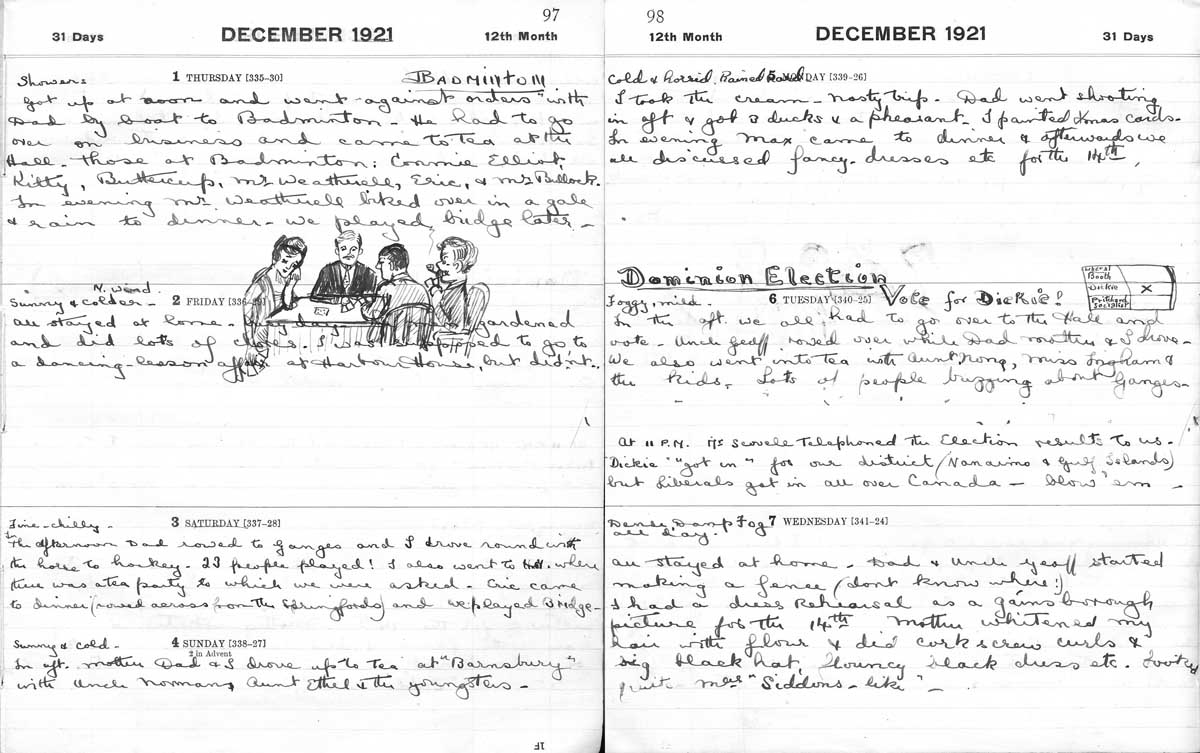 97
31 Days DECEMBER 1921 12th Month
Showers 1 THURSDAY [335-30] BADMINTON
Got up at noon and went "against orders" with
Dad by boat to Badminton. He had to go
over on business and came to tea at the
Hall. Those at Badminton: Connie Elliot,
Kitty, Buttercup, Mr Weatherell, Eric, & Mr Bullock.
In evening Mr Weatherell biked over in a gale
& rain to dinner - we played bridge later -
N. Wend.
Sunny & colder - 2 FRIDAY [336-29]
all stayed at home. gardened
and did lots of I was supposed to go to
a dancing-lesson affair at Harbour House, but didn't.
Fine - chilly - 3 SATURDAY [337-28]
In
The afternoon Dad rowed to Ganges and I drove round with
the horse to hockey. 23 people played! I also went to Hall, where
there was a tea party to which we were asked. Eric came
to dinner (rowed across from the Springfords) and we played Bridge -
Sunny & cold - 4 SUNDAY [338-27]
2 in Advent
In aft. Mother Dad & I drove up to tea at "Barnsbury"
with Uncle Norman, Aunt Ethel & the youngsters -
1F
98
12th Month DECEMBER 1921 31 Days
Cold & horrid. Rained hard 5 DAY [339-26]
I took the cream - nasty trip. Dad went shooting
in aft & got 3 ducks & a pheasant. I painted Xmas cards.
In evening Max came to dinner & afterwards we
all discussed fancy-dresses etc for the 14th.
Dominion Election
Liberal
Booth
Dickie X
Pritchard
Socialist
Foggy, mild. 6 TUESDAY [340-25] Vote for Dickie!
In the aft. we all had to go over to the Hall and
vote - Uncle Geoff rowed over while Dad Mother & I drove -
We also went in to tea with Aunt Nong, Miss Ingham &
the kids. Lots of people buzzing about Ganges -
At 11 P.M. Mrs Scovele telephoned the Election results to us -
Dickie "got in" for our district (Nanaimo & Gulf Islands)
but Liberals got in all over Canada - blow 'em -
Dense, Damp Fog 7 WEDNESDAY [341-24]
all day.
All stayed at home - Dad & Uncle Geoff started
making a fence (don't know where!)
I had a dress rehearsal as a Gainsborough
picture for the 14th Mother whitened my
hair with flour & did corkscrew curls &
big black hat, flouncy black dress etc. Looked
quite Mrs "Siddons-like" -